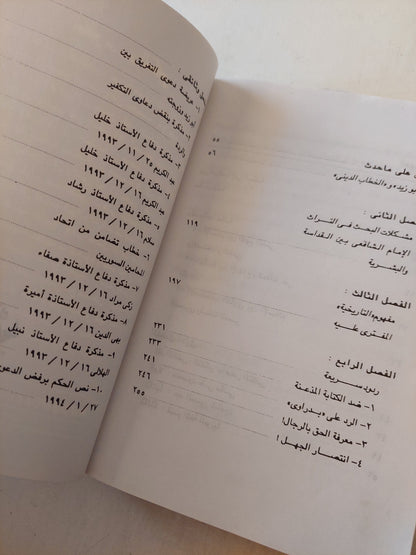 على ماحدث ٥٥
بو زيد، و«الخطاب الديني» ٥٦
الفصل الثاني :
مشكلات البحث في التراث ١١٩
الإمام الشافعي بين القداسة
والبشرية
الفصل الثالث : ١٩٧
مفهوم «التاريخية»
المفترى عليه
الفصل الرابع : ٢٣١
ردود سريعة ٢٣٣
١- ضد الكتابة المذعنة ٢٤١
٢- الرد على «بدراوي» ٢٤٦
٣- معرفة الحق بالرجال! ٢٥٥
٤- انتصار الجهل!
وثائقي :
١- عريضة دعوى التفريق بين
٢- مذكرة بنقض دعاوى التكفير
والردة
٣- مذكرة دفاع الأستاذ خليل
عبد الكريم ٢٥ / ١١ / ١٩٩٣
٤- مذكرة دفاع الأستاذ خليل
عبد الكريم ١٦ / ١٢ / ١٩٩٣
٥- مذكرة دفاع الأستاذ رشاد
سلام ١٦ / ١٢ / ١٩٩٣
٦- خطاب تضامن من اتحاد
المحامين السوريين
٧- مذكرة دفاع الأستاذة صفاء
زكي مراد ١٦ / ١٢ / ١٩٩٣
٨- مذكرة دفاع الأستاذة أميرة
بهي الدين ١٦ / ١٢ / ١٩٩٣
٩- مذكرة دفاع الأستاذ نبيل
الهلالي ١٦ / ١٢ / ١٩٩٣
١٠- نص الحكم برفض الدعوى
٢٧ / ١ / ١٩٩٤